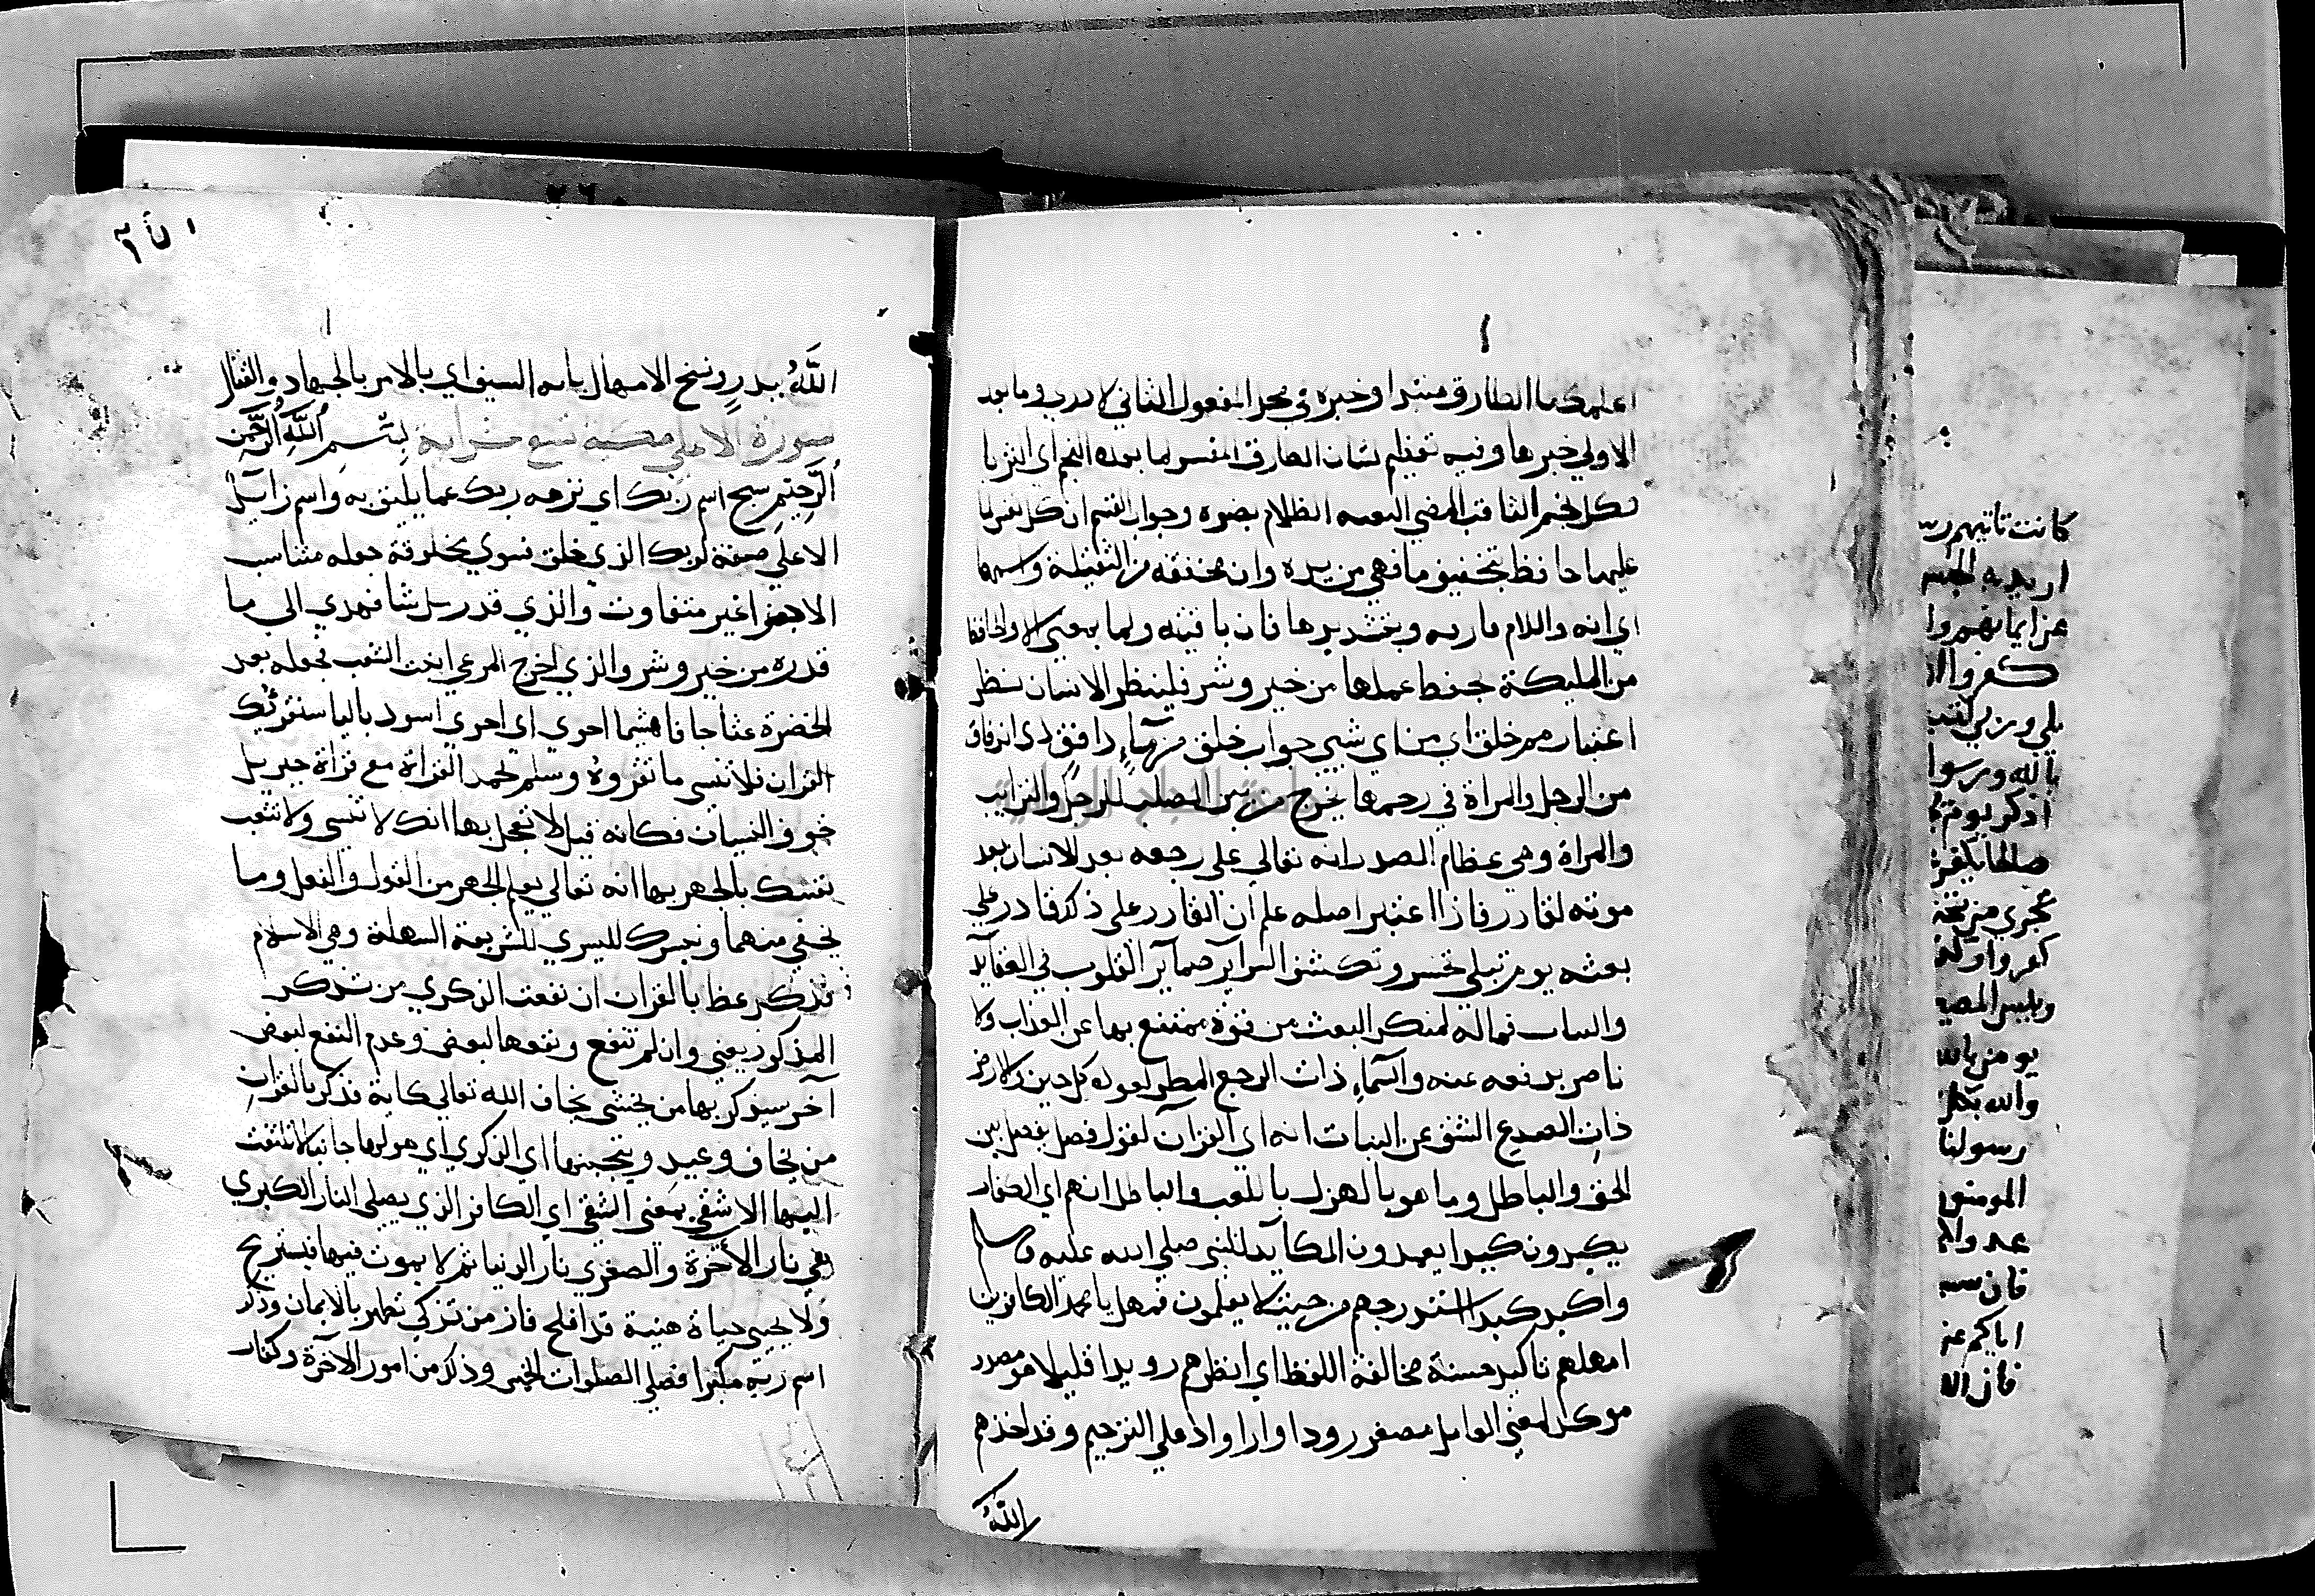 اعلمك ما الطارق مبتدا وخبره في محل المفعول الثاني لادري وما بعد
الاولي خبرها وفيه تعظيم لشان الطارق المفسر لما بعده النجم اي الثريا
كل نجم الثاقب المضي لثقبه الظلام بضوه وجواب القسم ان كل نفس لما
عليها حافظ بتخفيف ما فهي مزيده وان مخففه من الثقيلة واسمها
اي انه واللام فارقه وبتشديدها فان نافيه ولما بمعني الا والحافظ
من المليكة يحفظ عملها من خير وشر فلينظر الانسان نظر
اعتبار مم خلق اي من اي شي جوابه خلق من مآء دافق ذي اندفاق
من الرجل والمراة في رحمها يخرج من بين الصلب للرجل والترايب
والمراة وهي عظام الصدر انه تعالي علي رجعه بعد الانسان بعد
موته لقادر فاذا اعتبر اصله علم ان القادر علي ذلك قادر علي
بعثه يوم تبلي تختبر وتكشف السرآير ضمآير القلوب في العقآيد
والنيات فماله لمنكر البعث من قوة يمتنع بها عن العذاب ولا
ناصر يدفعه عنه والسمآء ذات الرجع المطر لعوده كل حين والارض
ذات الصدع الشق عن النبات انه اي القرآن لقول فصل يفصل بين
الحق والباطل وما هو بالهزل باللعب والباطل انهم اي الكفار
يكيدون كيدا يعمدون المكآيد للنبي صلي الله عليه وسلم
واكيد كيدا استدرجهم من حيث لا يعلمون فمهل يا محمد الكافرين
امهلهم تاكيد حسنه مخالفة اللفظ اي انظرهم رويدا قليلا هو مصدر
موكد لمعني العامل مصغر رودا وارواد علي الترخيم وقد اخذهم
الله
الله ببدر ونسخ الامهال باية السيف اي بالامر بالجهاد والقتال
سورة الاعلي مكية تسع عشر اية بسم الله الرحمن
الرحيم سبح اسم ربك اي نزه ربك عما يليق به واسم زآيد
الاعلي صفة لربك الذي خلق فسوي مخلوقة جعله متناسب
الاجزا غير متفاوت والذي قدر ما شا فهدي الي ما
قدره من خير وشر والذي اخرج المرعي انبت العشب فجعله بعد
الخضرة غثا جافا هشيما احوي اي احوي اسود باليا سنقرئك
القران فلا تنسي ما تقروه وسلم يجهد القراة مع قراة جبريل
خوف النسيان فكانه قيل لا تعجل بها انك لا تنسي ولا تتعب
نفسك بالجهر بها انه تعالي يعلم الجهر من القول والفعل وما
يخفي منهما ونيسرك لليسري للشريعة السهلة وهي الاسلام
فذكر عظ بالقران ان نفعت الذكري من تذكر
المذكور يعني وان لم تنفع ونفعها لبعض وعدم النفع لبعض
آخر سيذكر بها من يخشي يخاف الله تعالي كاية فذكر بالقران
من يخاف وعيد ويتجنبها اي الذكري اي هو لها جانبا لا يلتفت
اليها الاشقي بمعني الشقي اي الكافر الذي يصلي النار الكبري
هي نار الآخرة والصغري نار الدنيا ثم لا يموت فيها فيستريح
ولا يحيي حياة هنية قد افلح فاز من تزكي تطهر بالايمان وذكر
اسم ربه مكبرا فصلي الصلوات الخمس وذلك من امور الآخرة وكفار
كانت تاتيهم رس
اريد به الجنس
كفروا
بلي وربي لتبعث
بالله ورسو
اذكر يوم
صالحا يكفر
تجري من تحت
كفروا وك
وبيس المص
يومن بالله
والله بكل
رسولنا
المومنو
عدوا لكم
فان
اياكم عن
فان الله